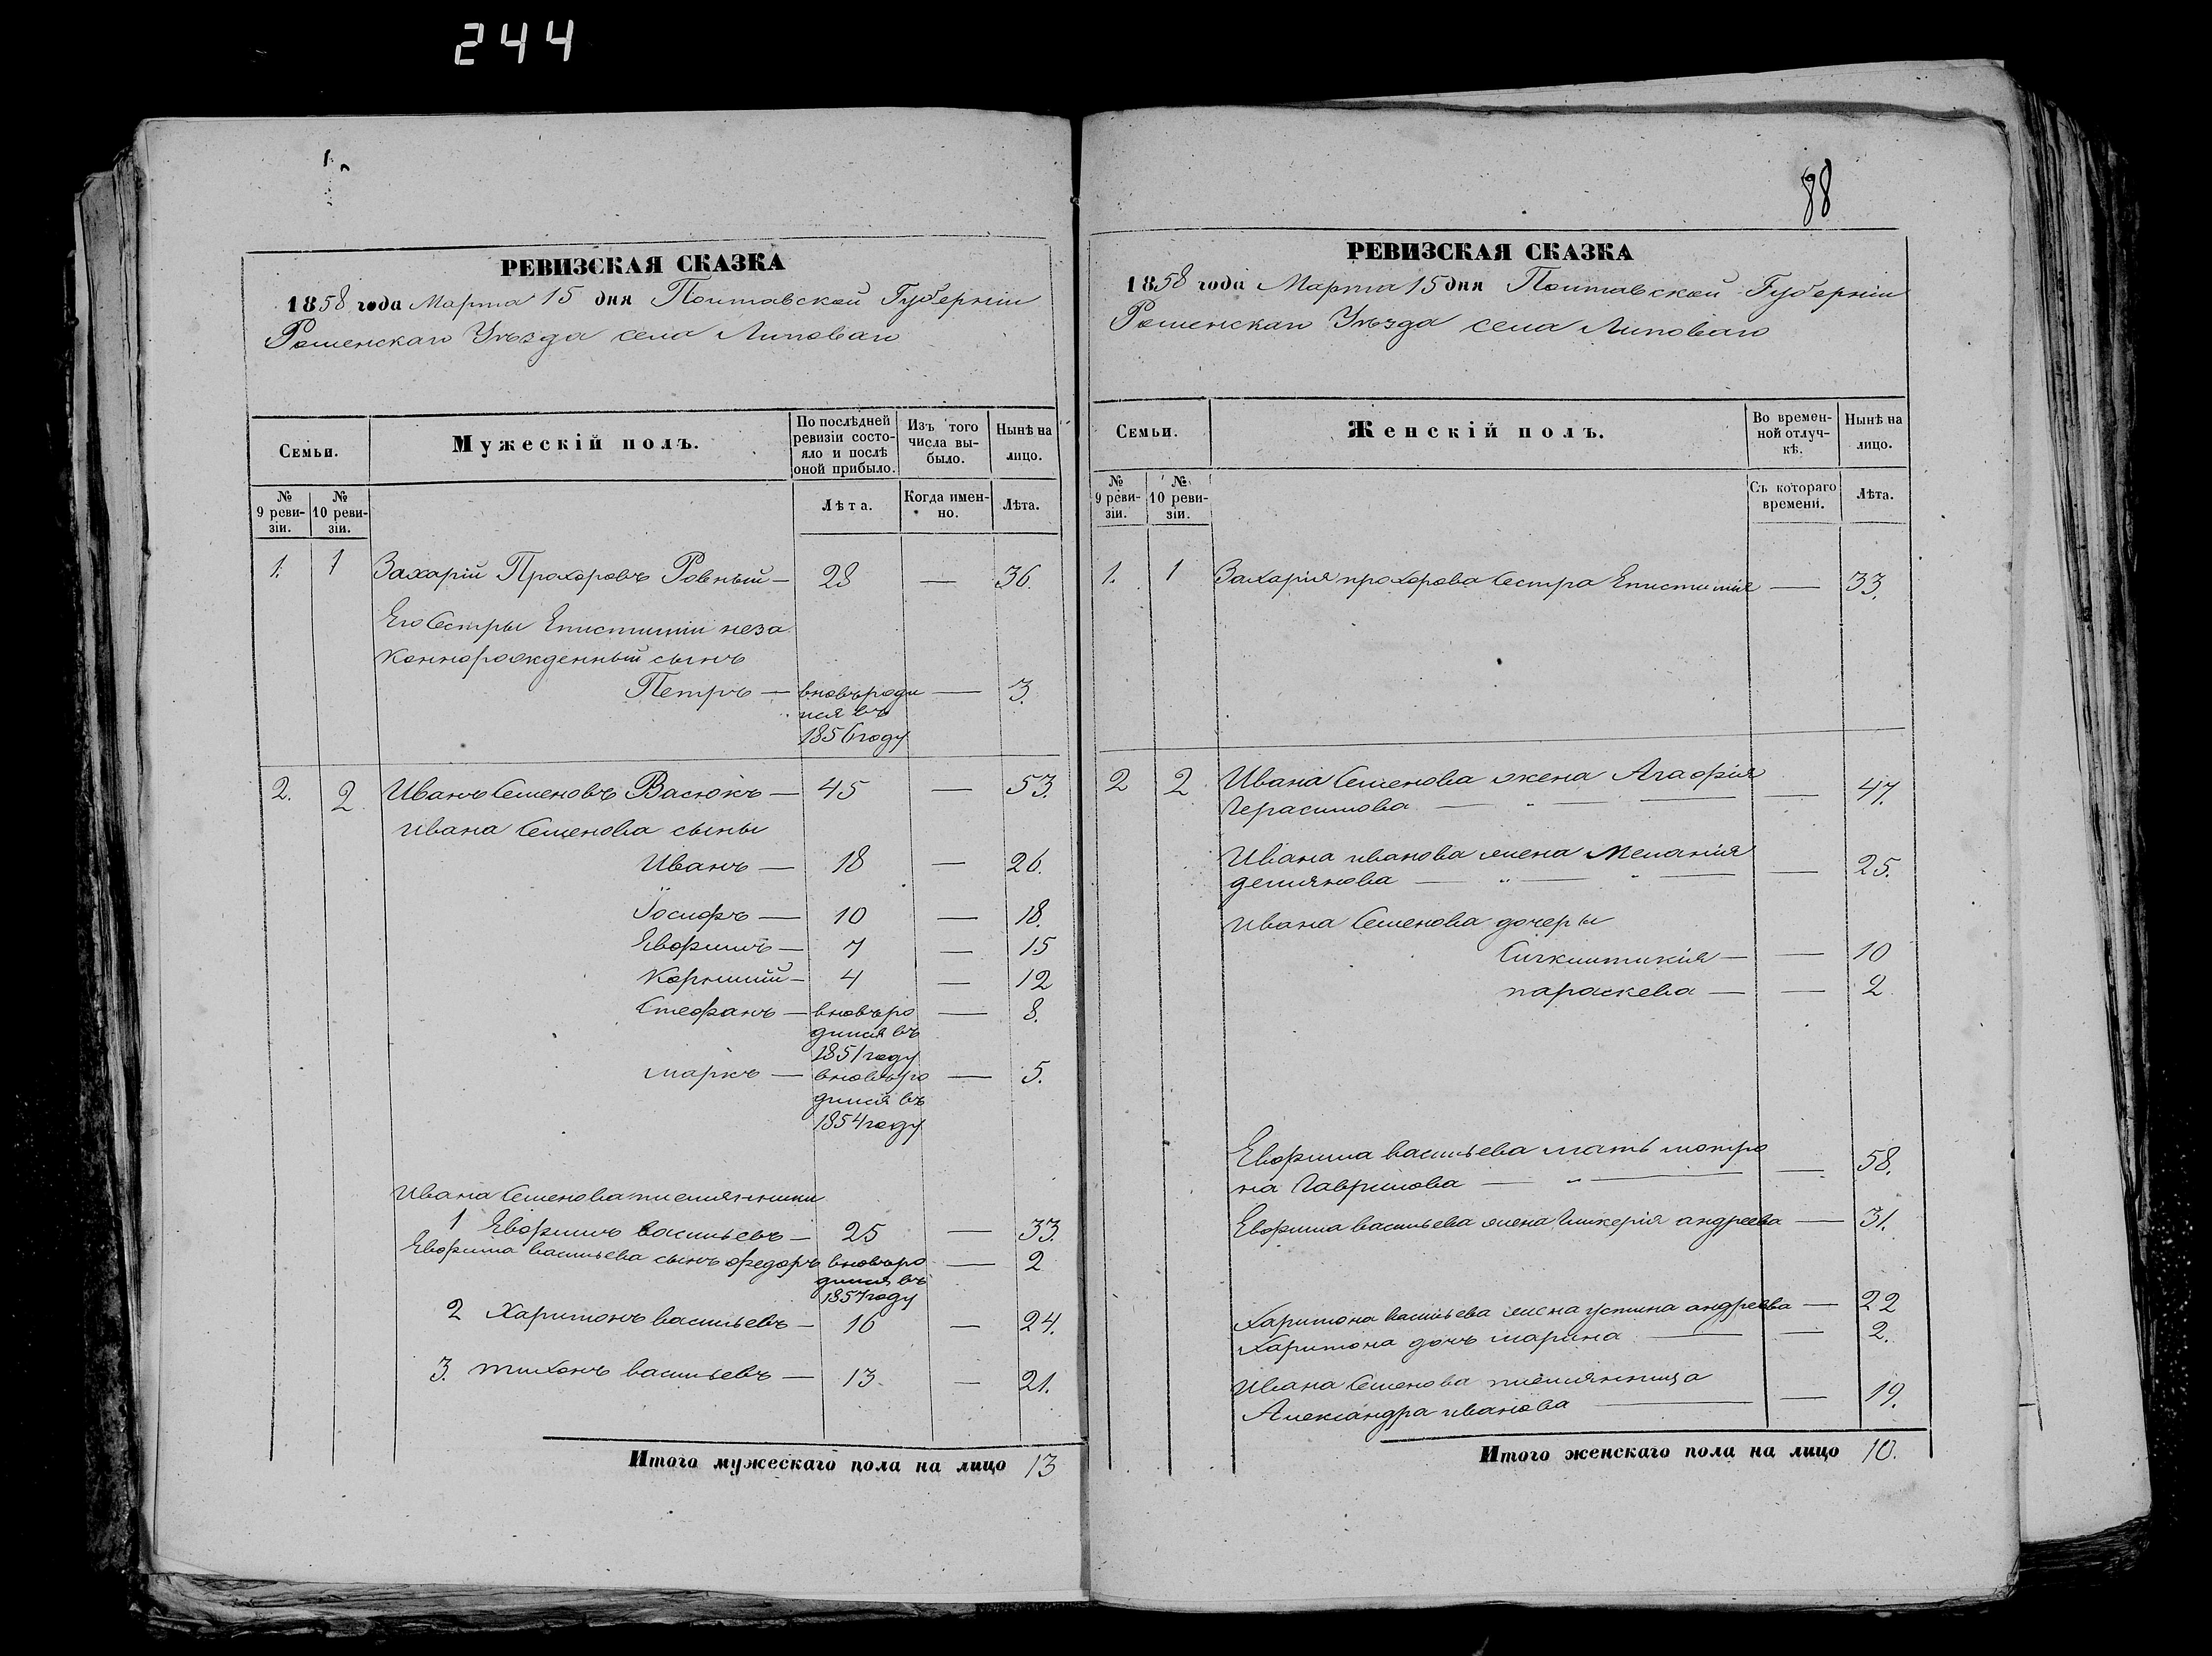 244
РЕВИЗСКАЯ СКАЗКА
1858 года Марта 15 дня Полтавской Губерніи
Роменскаго Уѣзда села Липоваго
Семьи.
Мужескій полъ.
По послѣдней ревизіи состояло и послѣ оной прибыло.
Изъ того числа выбыло.
Нынѣ на лицо.
№ 9 ревизіи.
№ 10 ревизіи.
Лѣта.
Когда именно.
Лѣта.
1. 1 Захарій Прохоровъ Ровный — 28 — 36.
Его Сестры Епистиміи неза
коннорожденный сынъ
Петръ — вновьроди — 3.
лся въ
1856 году
2. 2 Иванъ Семеновъ Васюкъ — 45 — 53.
Ивана Семенова сыны
Иванъ — 18 — 26.
Іосифъ — 10 — 18.
Евфимъ — 7 — 15
Корнилій — 4 — 12
Стефанъ — вновьро — 8.
дился въ
1851 году
Маркъ — вновьро — 5.
дился въ
1854 году
Ивана Семенова племянники
1 Евфимъ васильевъ — 25 — 33.
Евфима васильева сынъ федоръ вновьро — 2
дился въ
1857 году
2 Харитонъ васильевъ — 16 — 24.
3. тихонъ васильевъ — 13 — 21.
Итого мужескаго пола на лицо 13
88
РЕВИЗСКАЯ СКАЗКА
1858 года Марта 15 дня Полтавской Губерніи
Роменскаго Уѣзда села Липоваго
Семьи.
Женскій полъ.
Во временной отлучкѣ.
Нынѣ на лицо.
№ 9 ревизіи.
№ 10 ревизіи.
Съ котораго времени.
Лѣта.
1. 1 Захарія прохорова Сестра Епистимія — 33.
2 2 Ивана Семенова жена Агафія
Герасимова — 47.
Ивана иванова жена Меланія
демянова — 25.
Ивана Семенова дочеры
— — 10
параскева — — 2
Евфима васильева мать мотро
на Гаврилова — 58.
Евфима васильева жена Гликерія андреева — 31.
Харитона васильева жена устина андреева — 22
Харитона дочъ марина — — 2.
Ивана Семенова племянница
Александра иванова — 19.
Итого женскаго пола на лицо 10.